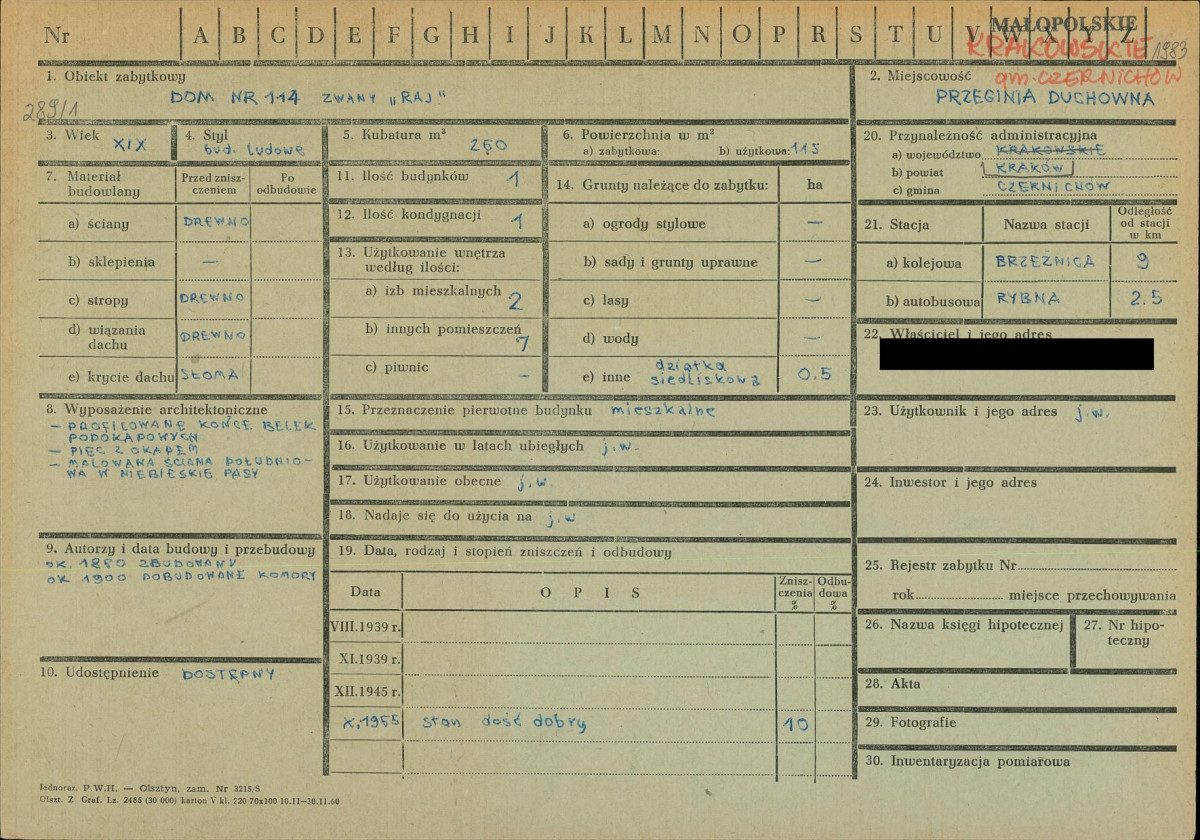 Nr A B C D E F G H I J K L M N O P R S T U V W X Y Z
MAŁOPOLSKIE
KRAKOWSKIE 1983
gm. CZERNICHÓW
1. Obiekt zabytkowy
DOM NR 114 ZWANY „RAJ"
289/1
2. Miejscowość
PRZEGINIA DUCHOWNA
3. Wiek XIX
4. Styl
bud. ludowe
5. Kubatura m³
250
6. Powierzchnia w m²
a) zabytkowa: b) użytkowa: 113
7. Materiał budowlany
Przed zniszczeniem
Po odbudowie
a) ściany DREWNO
b) sklepienia —
c) stropy DREWNO
d) wiązania dachu DREWNO
e) krycie dachu SŁOMA
8. Wyposażenie architektoniczne
— PROFILOWANE KOŃCE BELEK
PODOKAPOWYCH
— PIEC Z OKAPEM
— MALOWANA ŚCIANA POŁUDNIO-
WA W NIEBIESKIE PASY
9. Autorzy i data budowy i przebudowy
OK. 1850 ZBUDOWANY
OK 1900 DOBUDOWANE KOMORY
10. Udostępnienie DOSTĘPNY
11. Ilość budynków 1
12. Ilość kondygnacji 1
13. Użytkowanie wnętrza
według ilości:
a) izb mieszkalnych 2
b) innych pomieszczeń 7
c) piwnic -
14. Grunty należące do zabytku: ha
a) ogrody stylowe —
b) sady i grunty uprawne —
c) lasy —
d) wody —
e) inne działka siedliskowa 0.5
15. Przeznaczenie pierwotne budynku mieszkalne
16. Użytkowanie w latach ubiegłych j.w.
17. Użytkowanie obecne j.w.
18. Nadaje się do użycia na j.w
19. Data, rodzaj i stopień zniszczeń i odbudowy
Data OPIS Zniszczenia % Odbudowa %
VIII.1939 r.
XI.1939 r.
XII.1945 r.
stan dość dobry 10
20. Przynależność administracyjna
a) województwo KRAKOWSKIE
b) powiat KRAKÓW
c) gmina CZERNICHÓW
21. Stacja Nazwa stacji Odległość od stacji w km
a) kolejowa BRZEŹNICA 9
b) autobusowa RYBNA 2.5
22. Właściciel i jego adres
23. Użytkownik i jego adres j.w.
24. Inwestor i jego adres
25. Rejestr zabytku Nr
rok miejsce przechowywania
26. Nazwa księgi hipotecznej
27. Nr hipoteczny
28. Akta
29. Fotografie
30. Inwentaryzacja pomiarowa
Jednoraz. P.W.H. — Olsztyn, zam. Nr 3215/S
Olszt. Z. Graf. Lz. 2485 (30 000) karton V kl. 220 70x100 10.11—30.11.60